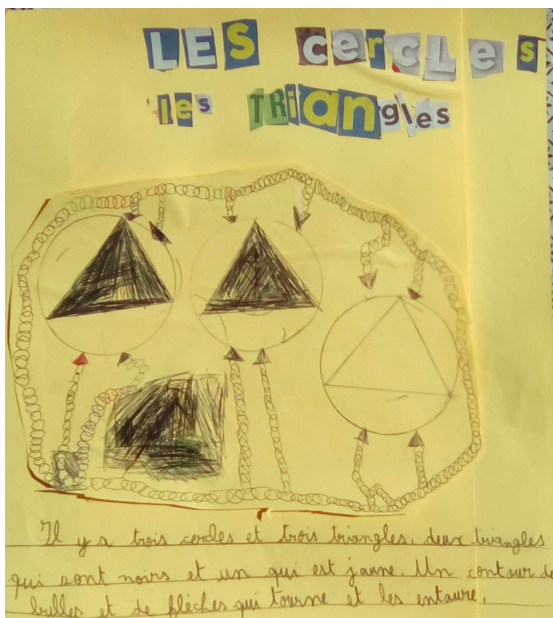 LES cercles
les TRiangles
Il y a trois cercles et trois triangles, deux triangles
qui sont noirs et un qui est jaune. Un contour de
bulles et de flèches qui tourne et les entaure.